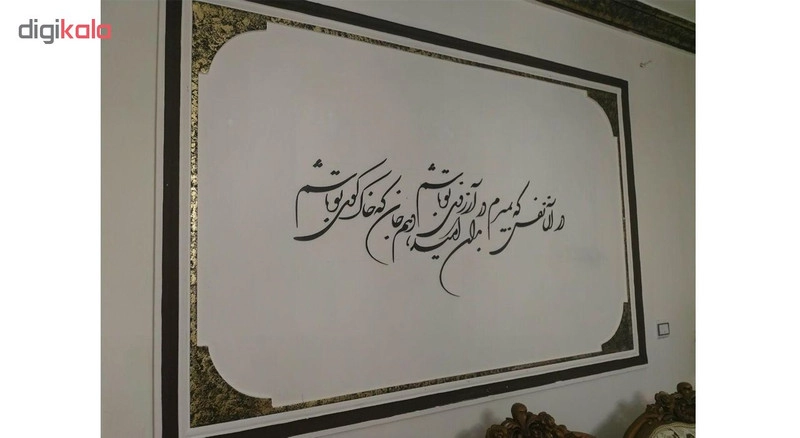 digikala
در آن نفس که بمیرم در آرزوی تو باشم
بدان امید دهم جان که خاک کوی تو باشم